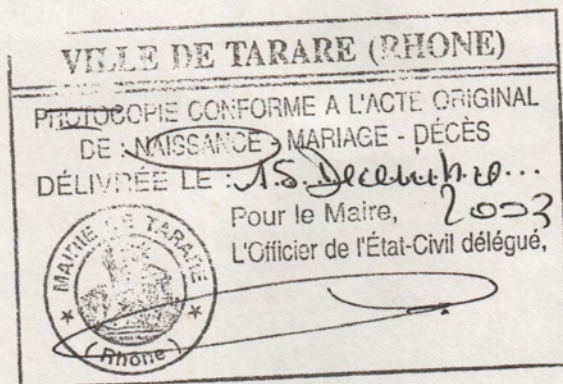 VILLE DE TARARE (RHONE)
PHOTOCOPIE CONFORME A L'ACTE ORIGINAL
DE : NAISSANCE - MARIAGE - DÉCÈS
DÉLIVRÉE LE : 15 Decembre...
2003
Pour le Maire,
L'Officier de l'État-Civil délégué,
MAIRIE DE TARARE
(Rhône)